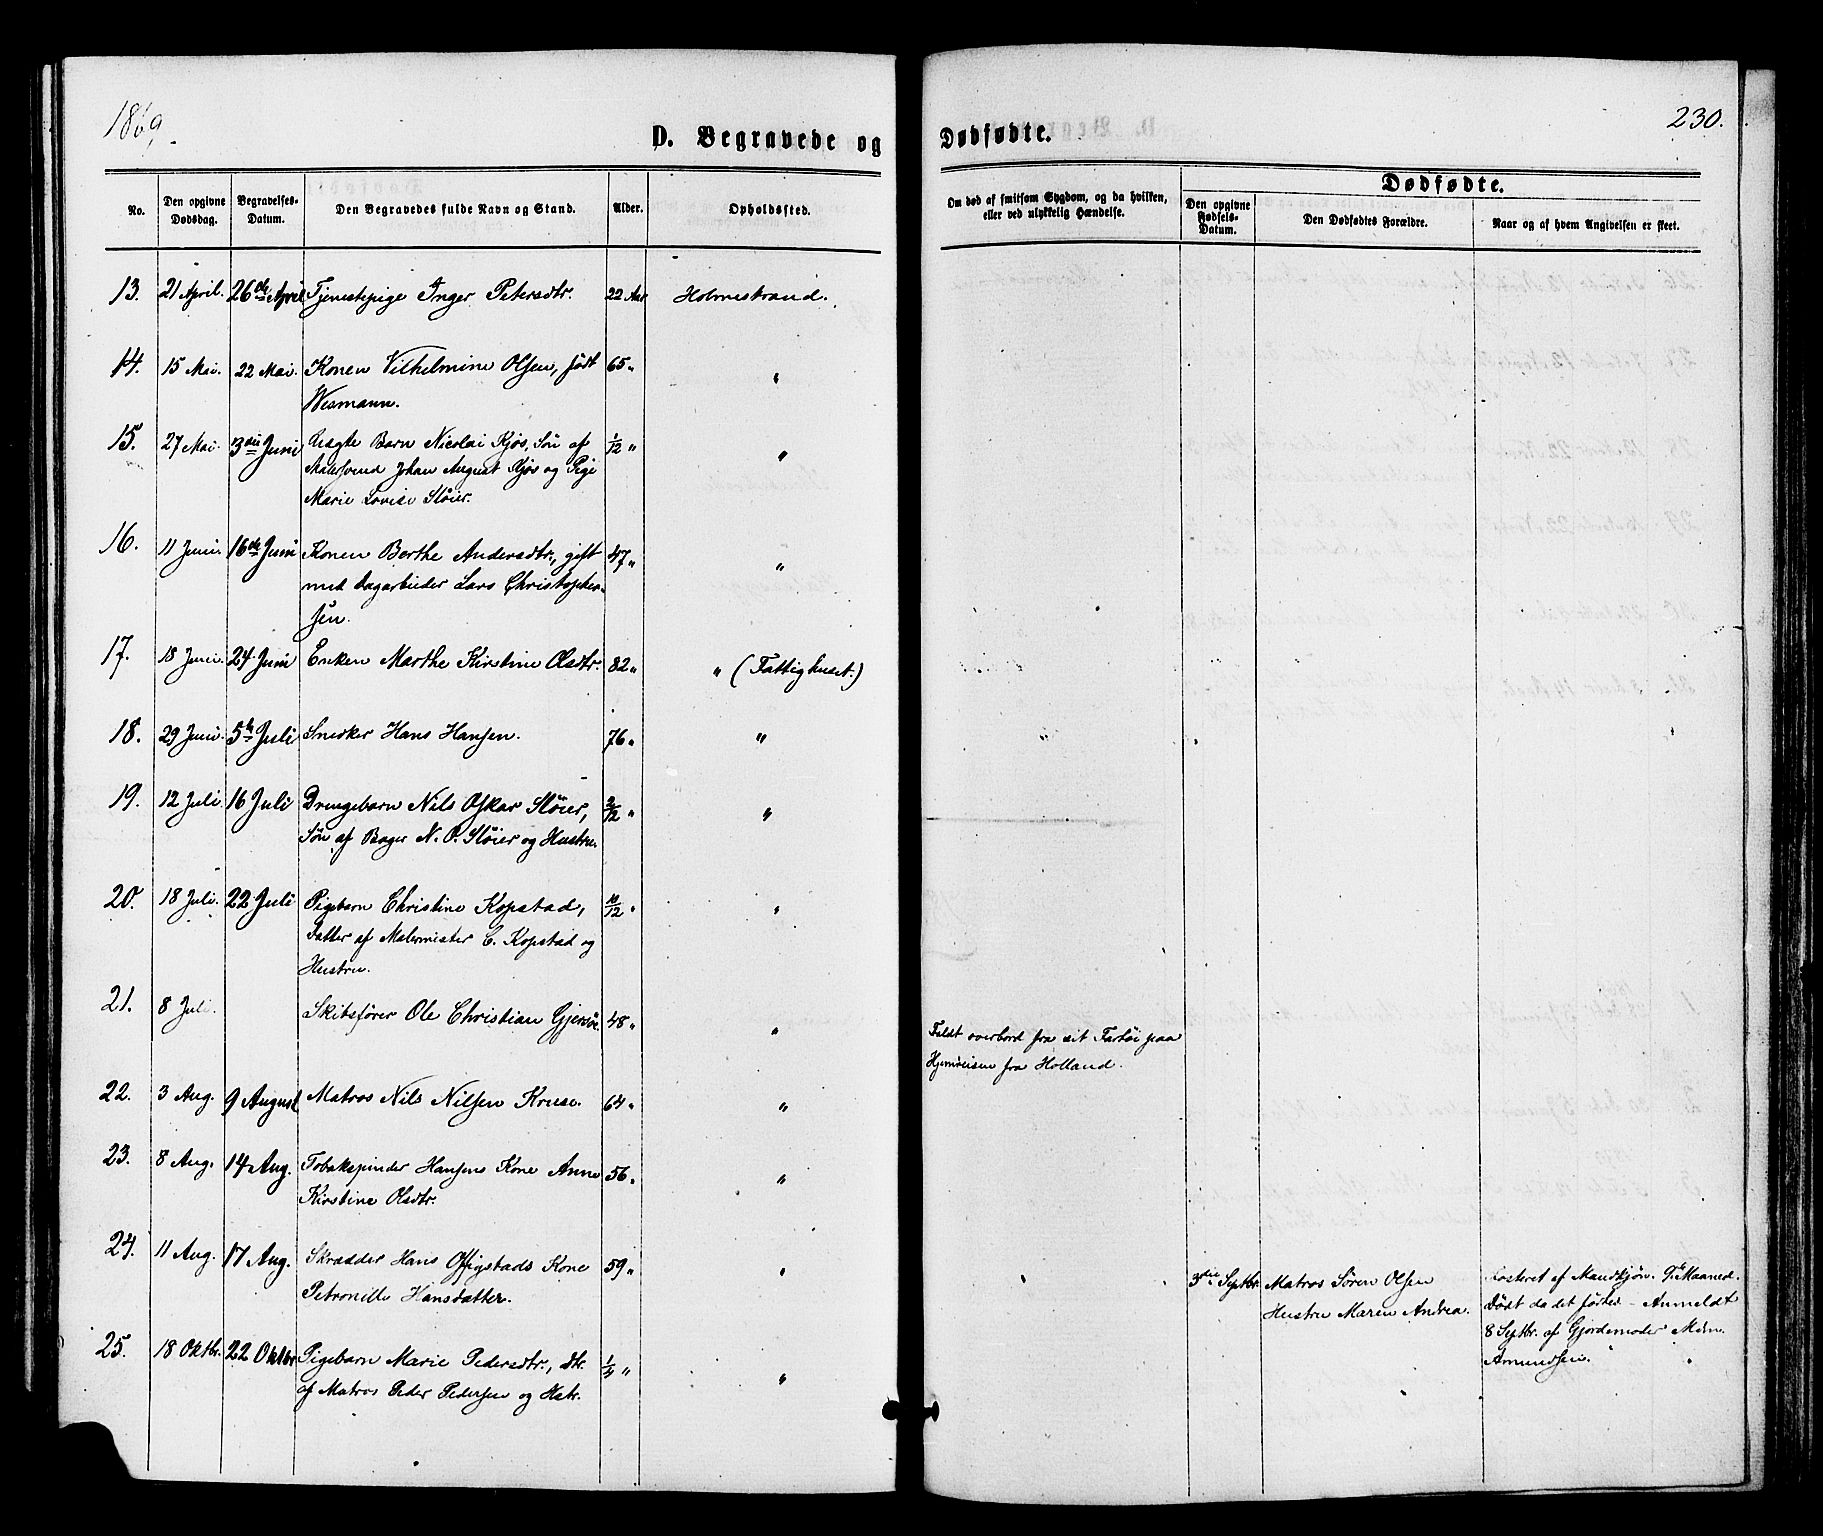 1869.
230.
D. Begravede og Dødfødte.
No.
Den opgivne Dødsdag.
Begravelses-Datum.
Den Begravedes fulde Navn og Stand.
Alder.
Opholdssted.
Om død af smitsom Sygdom, og da hvilken,
eller ved ulykkelig Hændelse.
Dødfødte.
Den opgivne Fødsels-Datum.
Den Dødfødtes Forældre.
Naar og af hvem Angivelsen er skeet.
13. 21 April. 26de April Tjenestepige Inger Petersdtr. 22 Aar Holmestrand.
14. 15 Mai. 22 Mai. Konen Vilhelmine Olsen, født 65 " "
Wesmann.
15. 27 Mai. 3die Juni Uægte Barn Nicolai Kjøs, Søn af 1/12 " "
Johan August Kjøs og Pige
Marie Lovise Støier.
16. 11 Juni. 16de Juni Konen Berthe Andersdtr., gift 47 " "
med Dagarbeider Lars Christopher-
sen.
17. 18 Juni. 24 Juni Enken Marthe Kirstine Olsdtr. 82 " " (Fattighuset.)
18. 29 Juni. 5te Juli Snedker Hans Hansen. 76 " "
19. 12 Juli. 16 Juli Drengebarn Nils Oskar Støier, 2/12 " "
Søn af Bager N. O. Støier og Hustru.
20. 18 Juli. 22 Juli Pigebarn Christine Kopstad, 10/12 " "
Datter af Malermester C. Kopstad og
Hustru.
21. 8 Juli. Skibsfører Ole Christian Gjersøe. 48 " "
Faldt overbord fra sit Fartøi paa
Hjemreisen fra Holland.
22. 3 Aug. 9 August Matros Nils Nilsen Kruse. 64 " "
23. 8 Aug. 14 Aug. Tobakspinder Hansens Kone Anne 56 " "
Kirstine Olsdtr.
24. 11 Aug. 17 Aug. Skrædder Hans Offigstads Kone 59 " "
Petronille Hansdatter.
3die Septbr. Matros Søren Olsen
Hustru Maren Andrea.
Fosteret af Mandkjøn. 7de Maaned.
Dødt da det fødtes - Anmeldt
8 Septbr. af Gjordemoder Mdm.
Amundsen.
25. 18 Oktbr. 22 Oktbr Pigebarn Marie Pedersdtr., dtr. 1/4 " "
af Matros Peder Pedersen og Hstr.